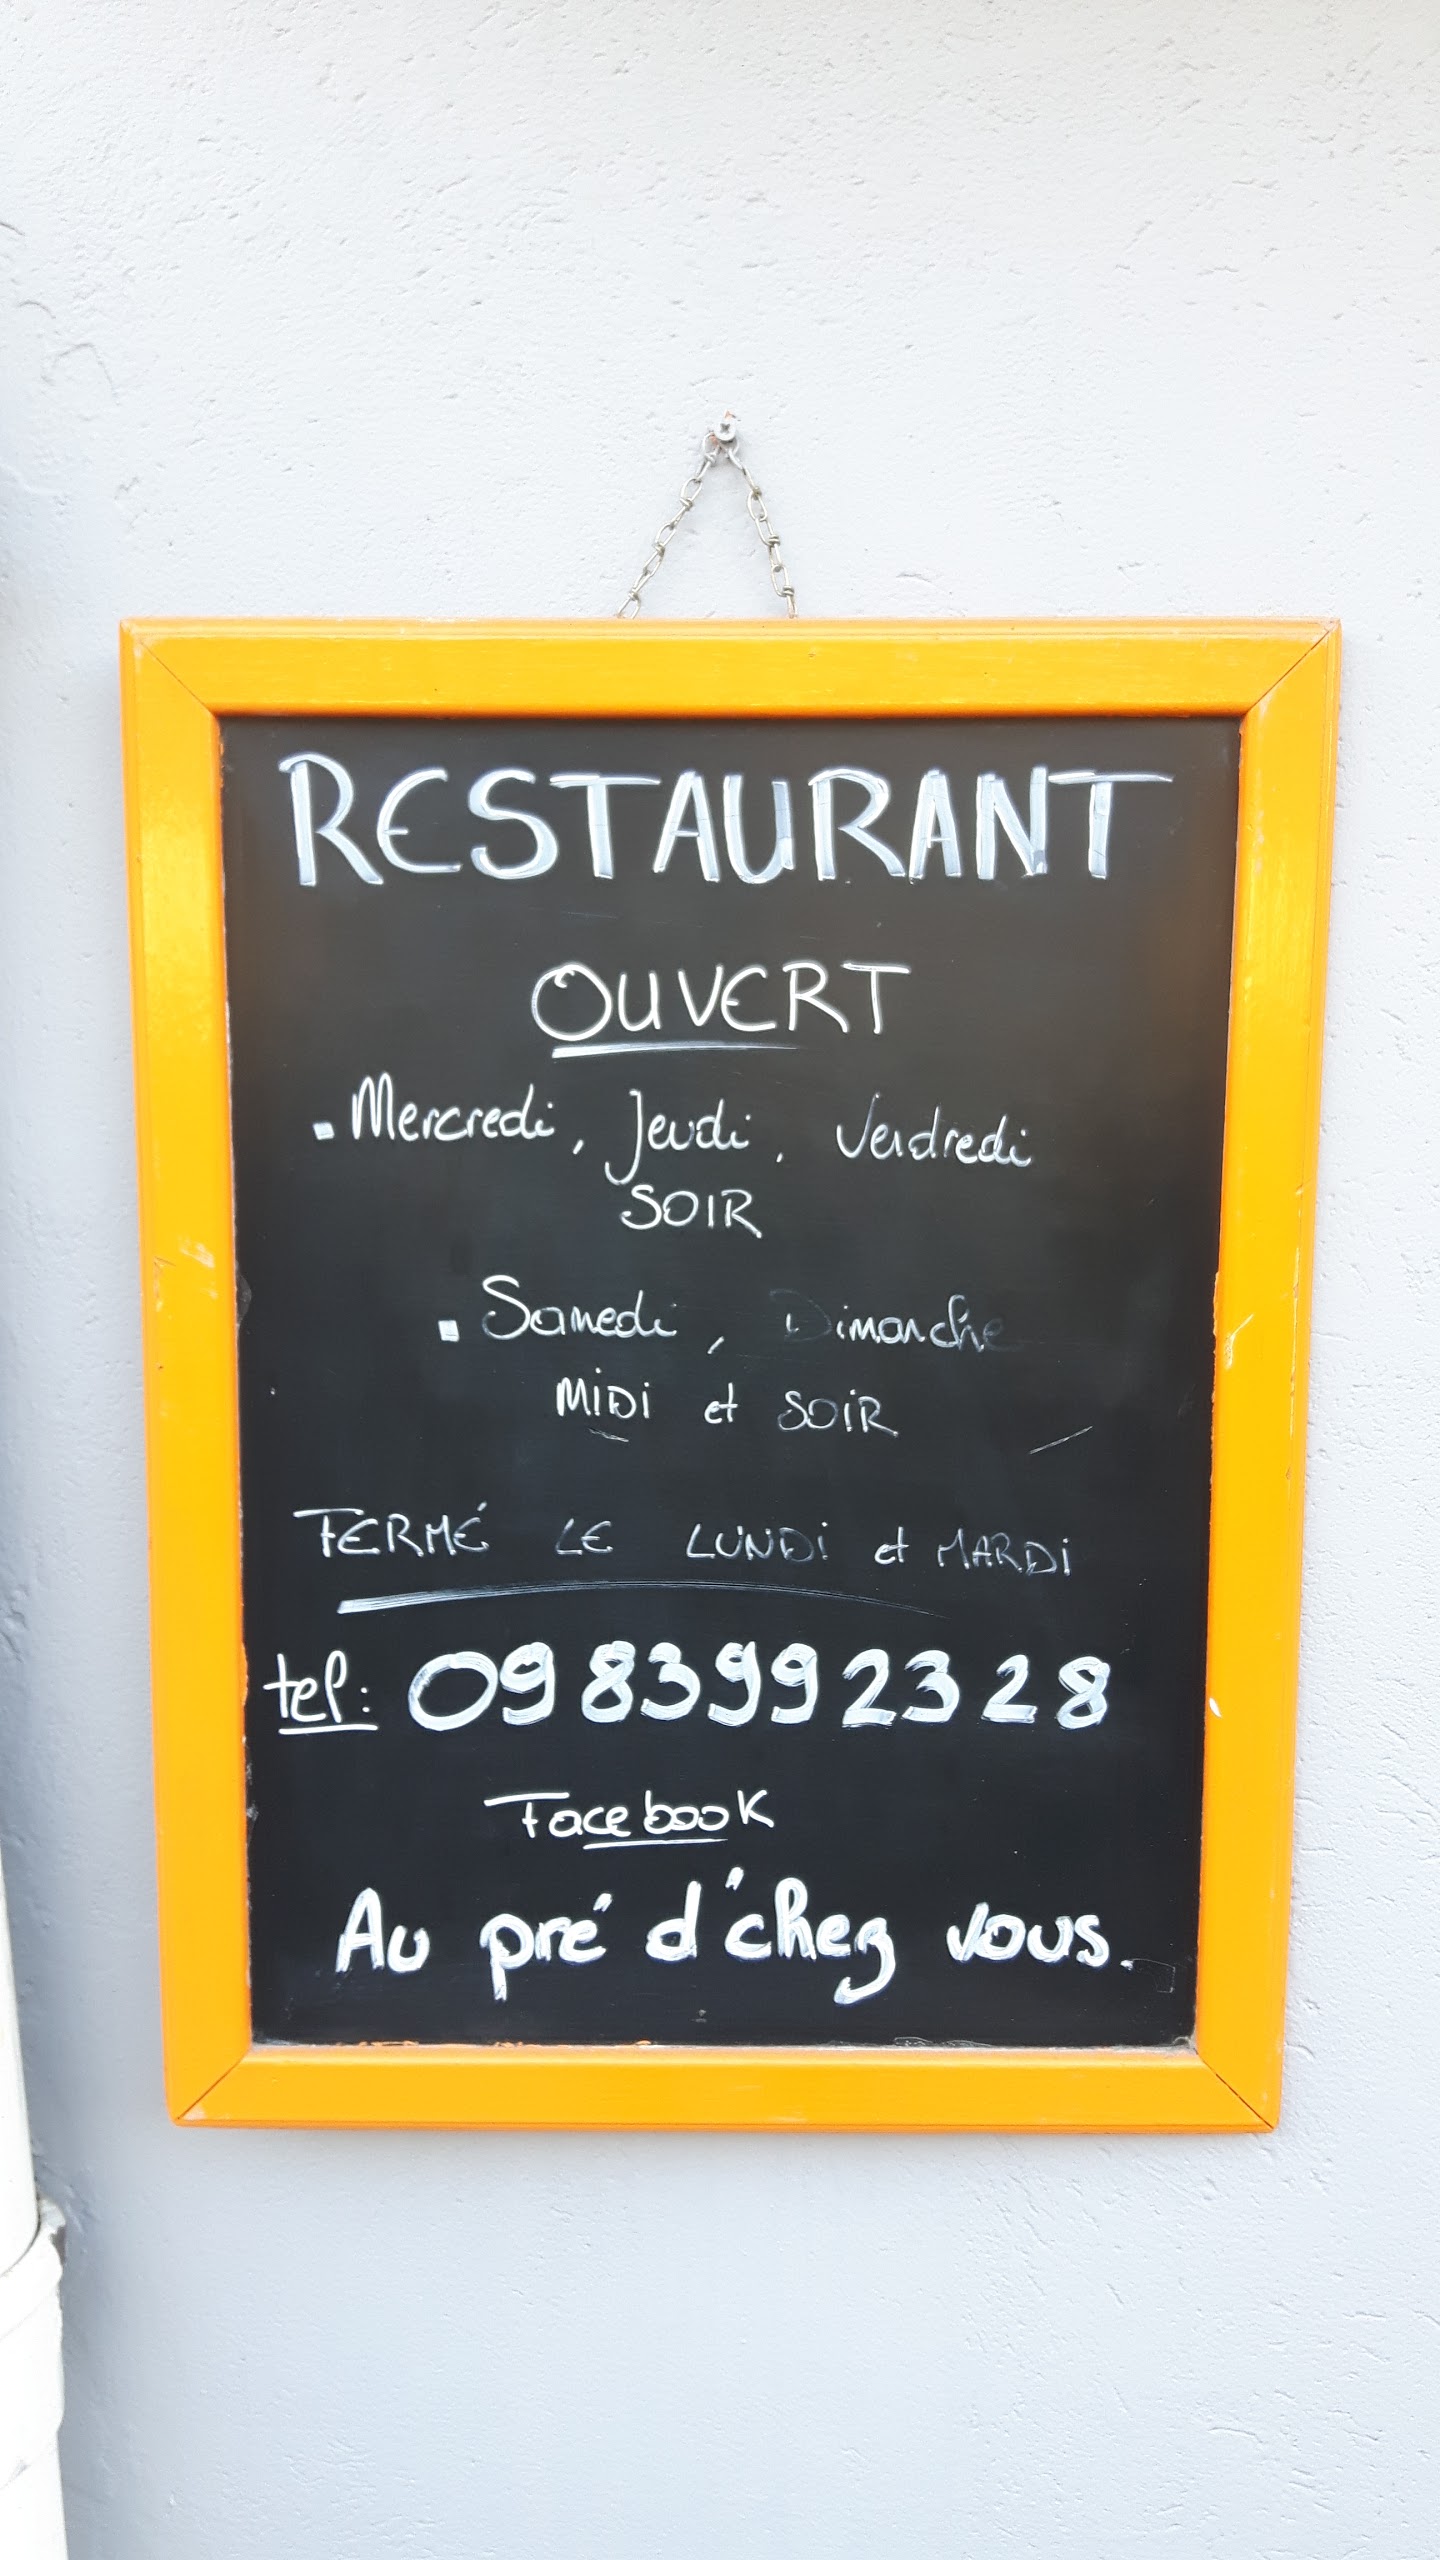 RESTAURANT
OUVERT
. Mercredi, Jeudi, Vendredi
SOIR
. Samedi, Dimanche
MiDi et SOiR
FERMÉ LE LUNDi et MARDi
tel: 0983992328
Facebook
Au pré d'chez vous.